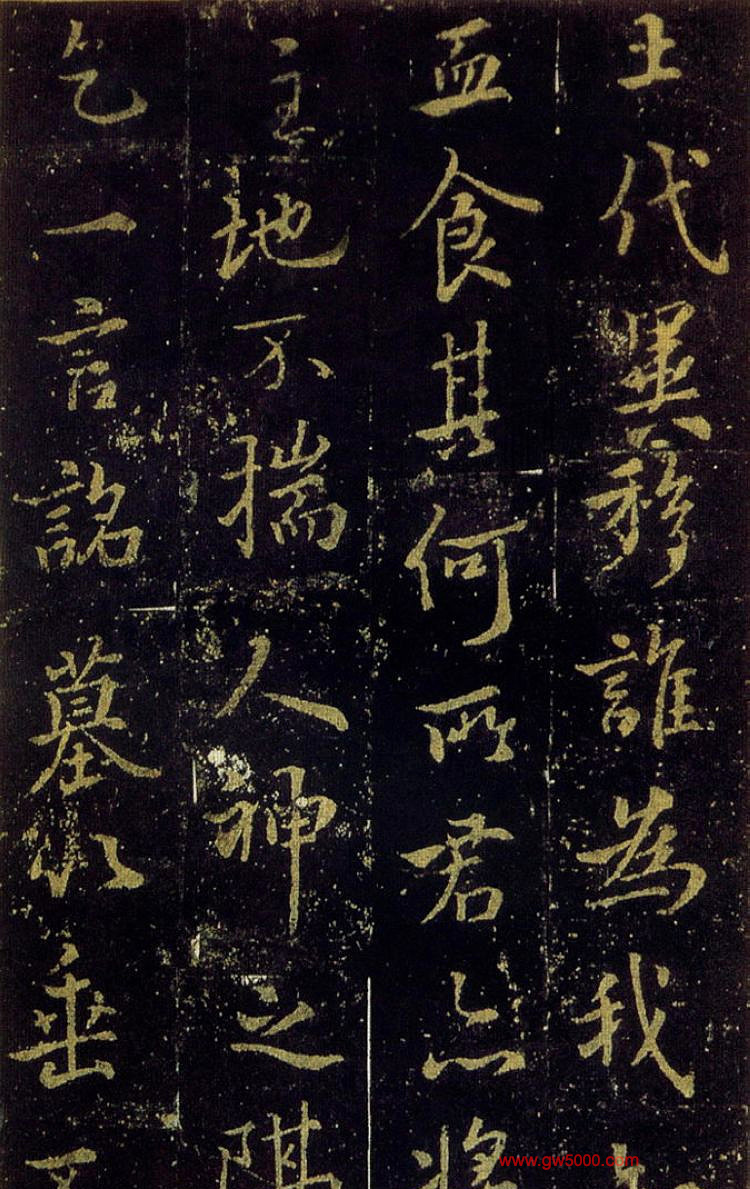 代異移誰為我
血食其何所君亦將
主地不揣人神之
乞一言銘墓以垂不
www.gw5000.com